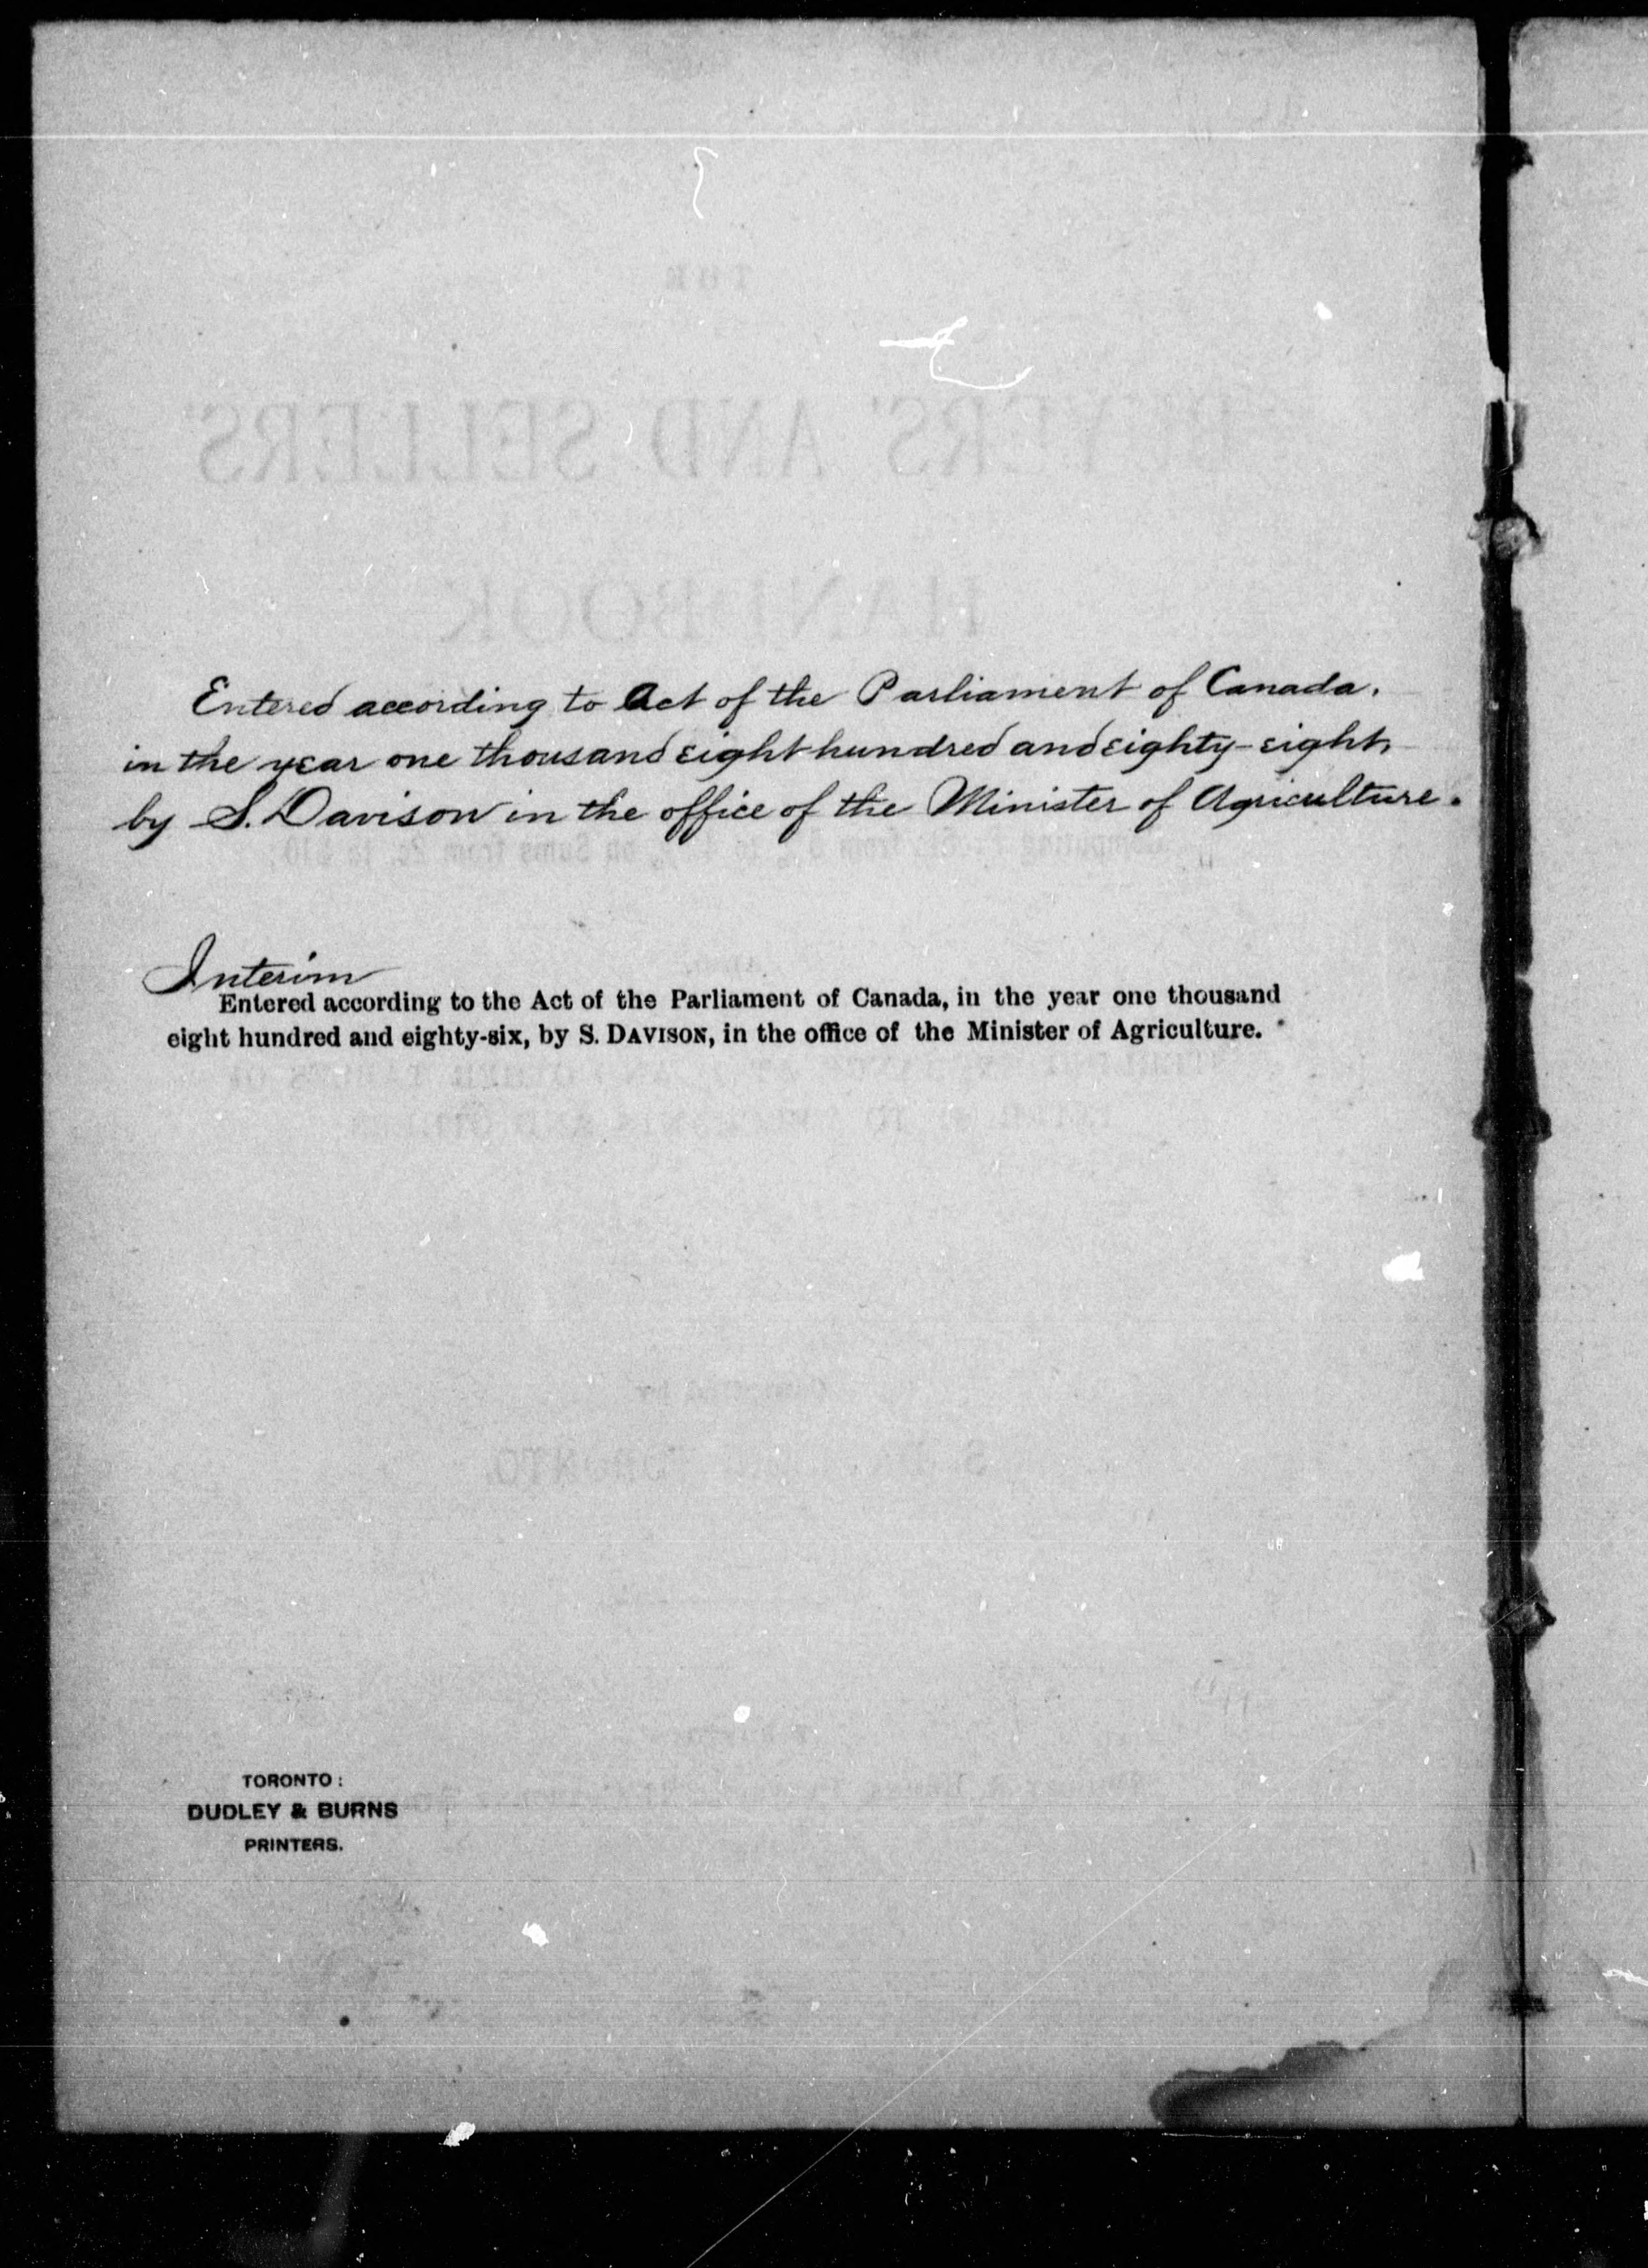 Entered according to Act of the Parliament of Canada,
in the year one thousand eight hundred and eighty-eight,
by S. Davison in the office of the Minister of Agriculture.
Interim
Entered according to the Act of the Parliament of Canada, in the year one thousand
eight hundred and eighty-six, by S. DAVISON, in the office of the Minister of Agriculture.
TORONTO:
DUDLEY & BURNS
PRINTERS.